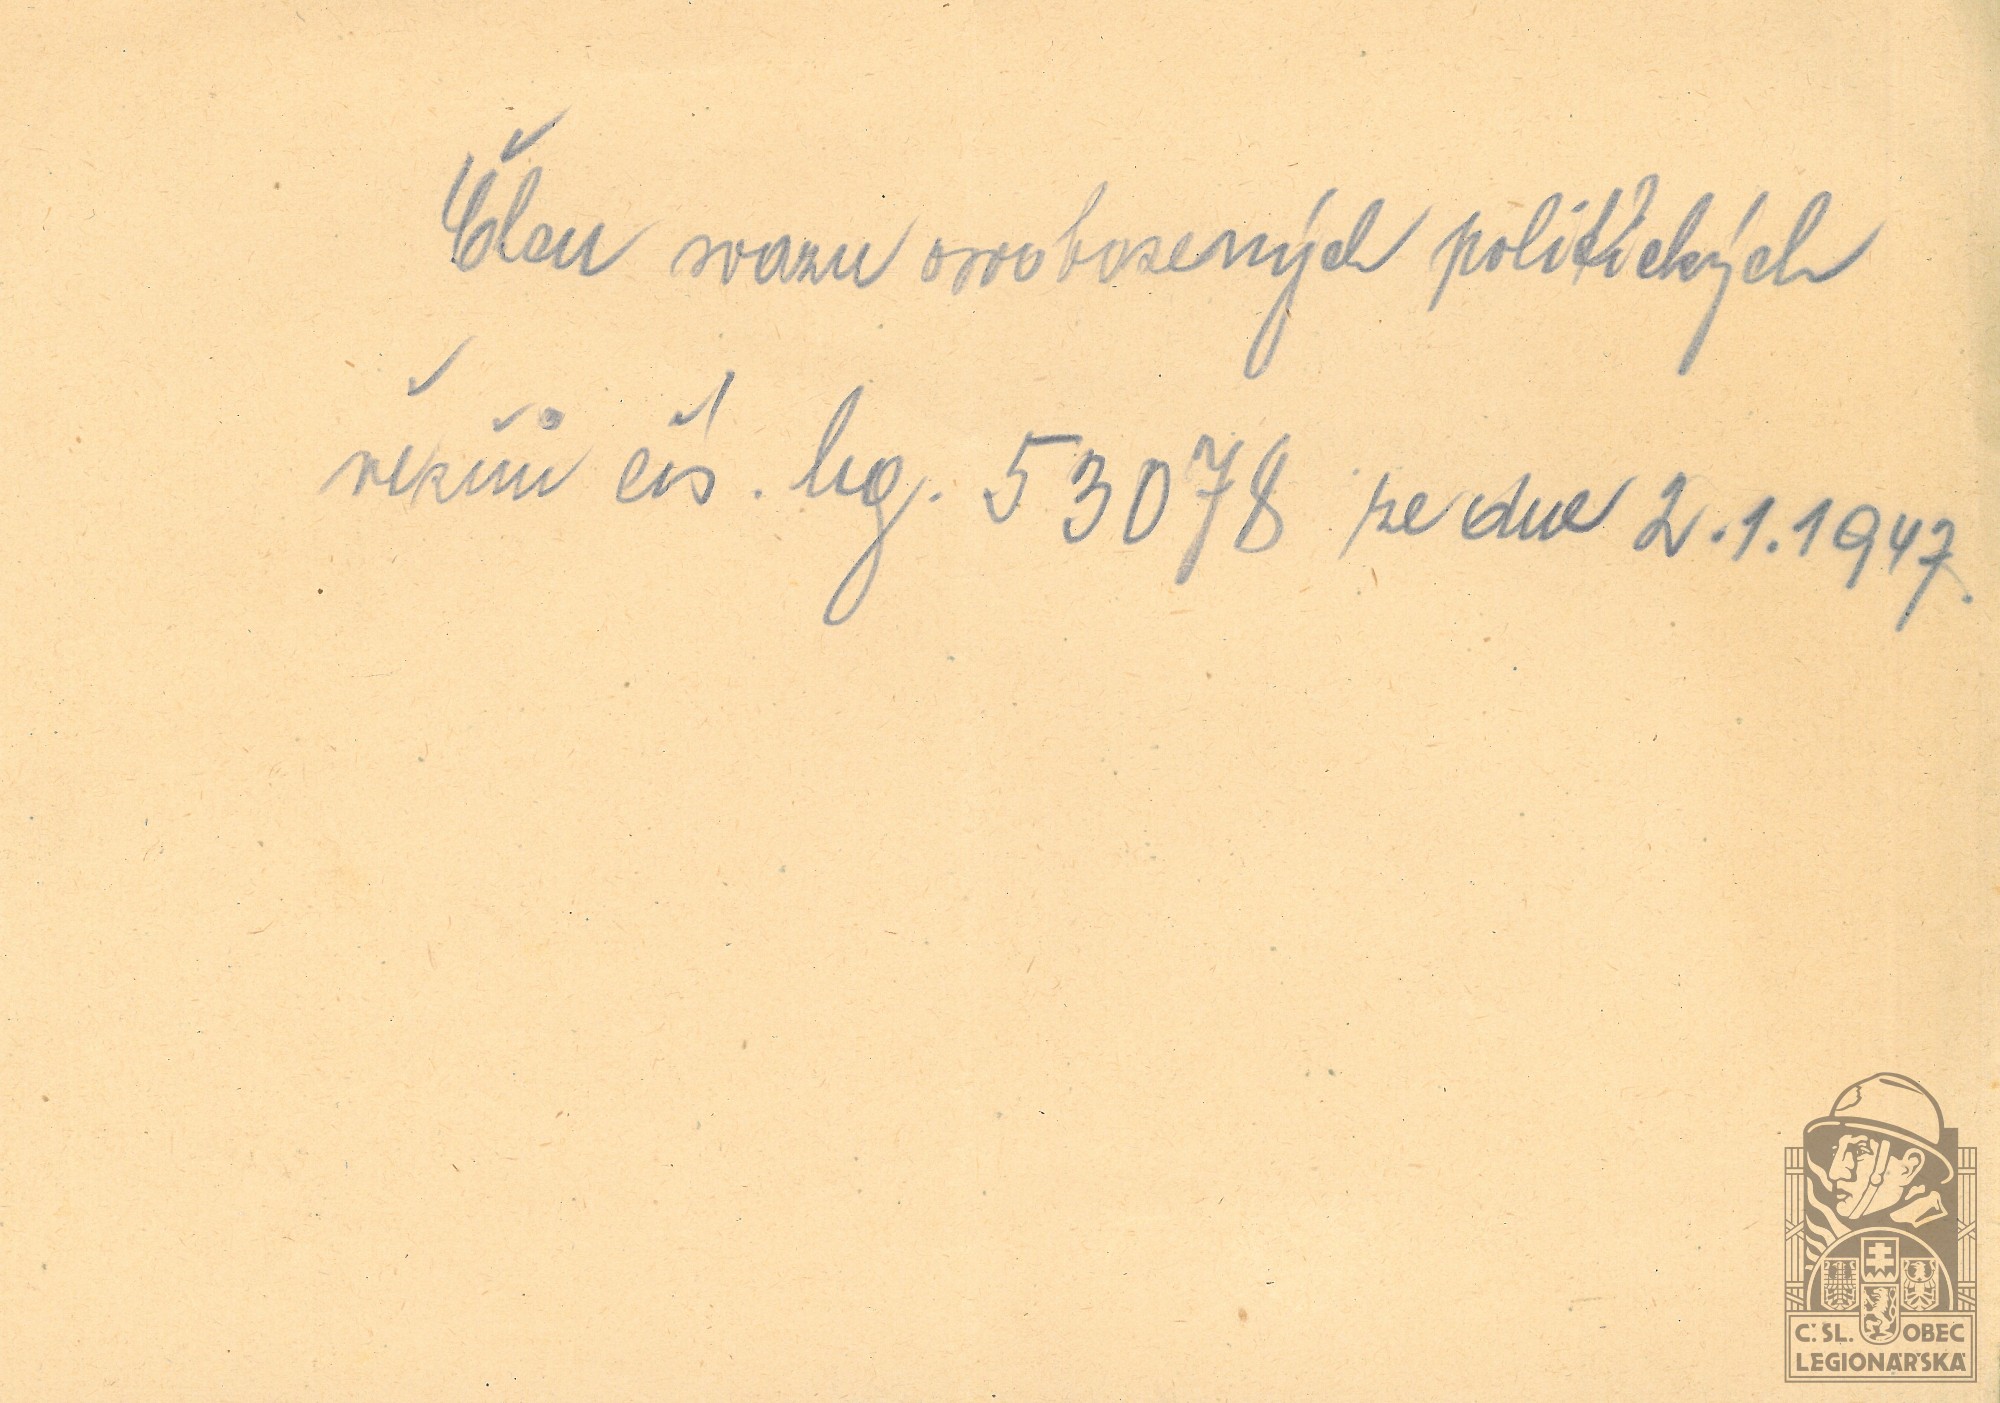 Člen svazu osvobozených politických
vězňů čís. leg. 53078 ze dne 2.1.1947.
Č. SL. OBEC
LEGIONÁŘSKÁ